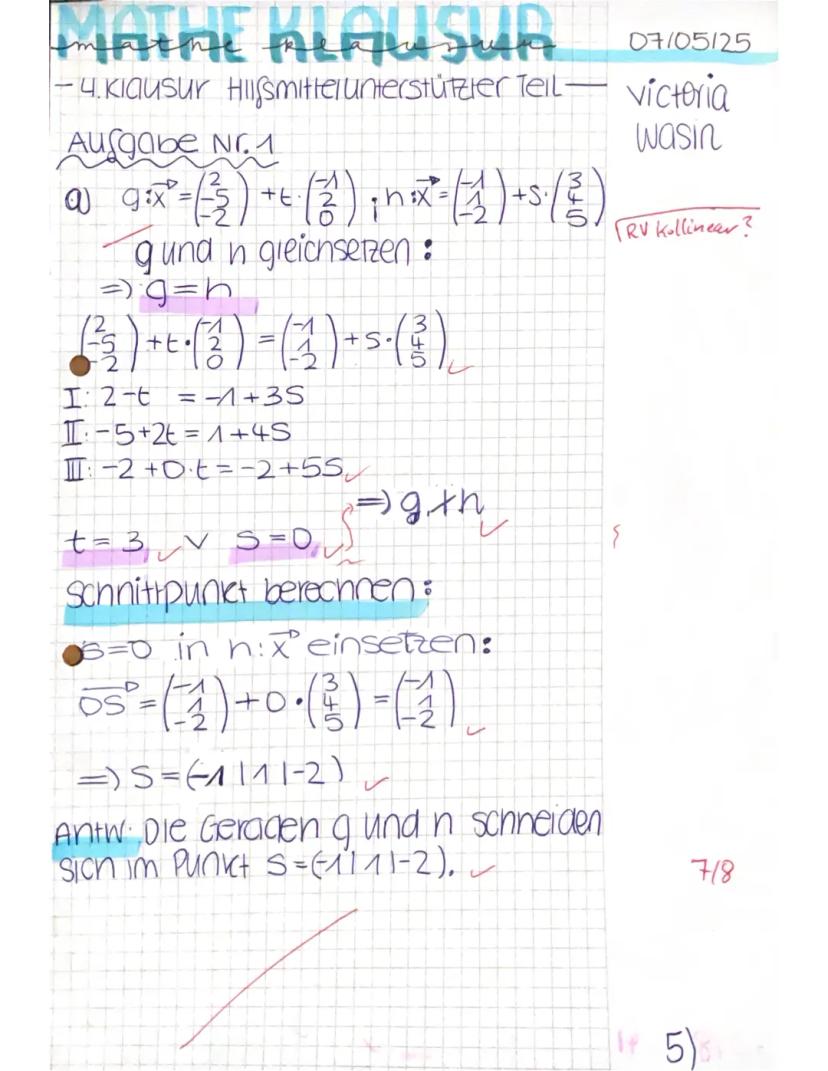 MATHE KLAUSUR
mathe klausur
07/05/25
- 4. Klausur Hilfsmittelunterstützter Teil —
Victoria
Wasin
Aufgabe Nr. 1
a) g: x⃗ = (2 -5 -2) + t · (-1 2 0) ; h: x⃗ = (-1 1 -2) + s · (3 4 5)
RV kollinear?
g und h gleichsetzen:
=> g = h
(2 -5 -2) + t · (-1 2 0) = (-1 1 -2) + s · (3 4 5)
I: 2-t = -1+3s
II: -5+2t = 1+4s
III: -2+0·t = -2+5s
=> g ∦ h
t = 3 ∨ s = 0
Schnittpunkt berechnen:
s=0 in h: x⃗ einsetzen:
OS⃗ = (-1 1 -2) + 0 · (3 4 5) = (-1 1 -2)
=> S = (-1|1|-2)
Antw: Die Geraden g und h schneiden
sich im Punkt S = (-1|1|-2).
7/8
5)